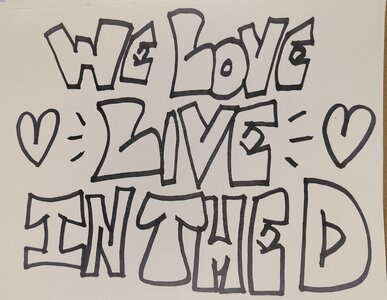 WE LOVE
LIVE
IN THE D